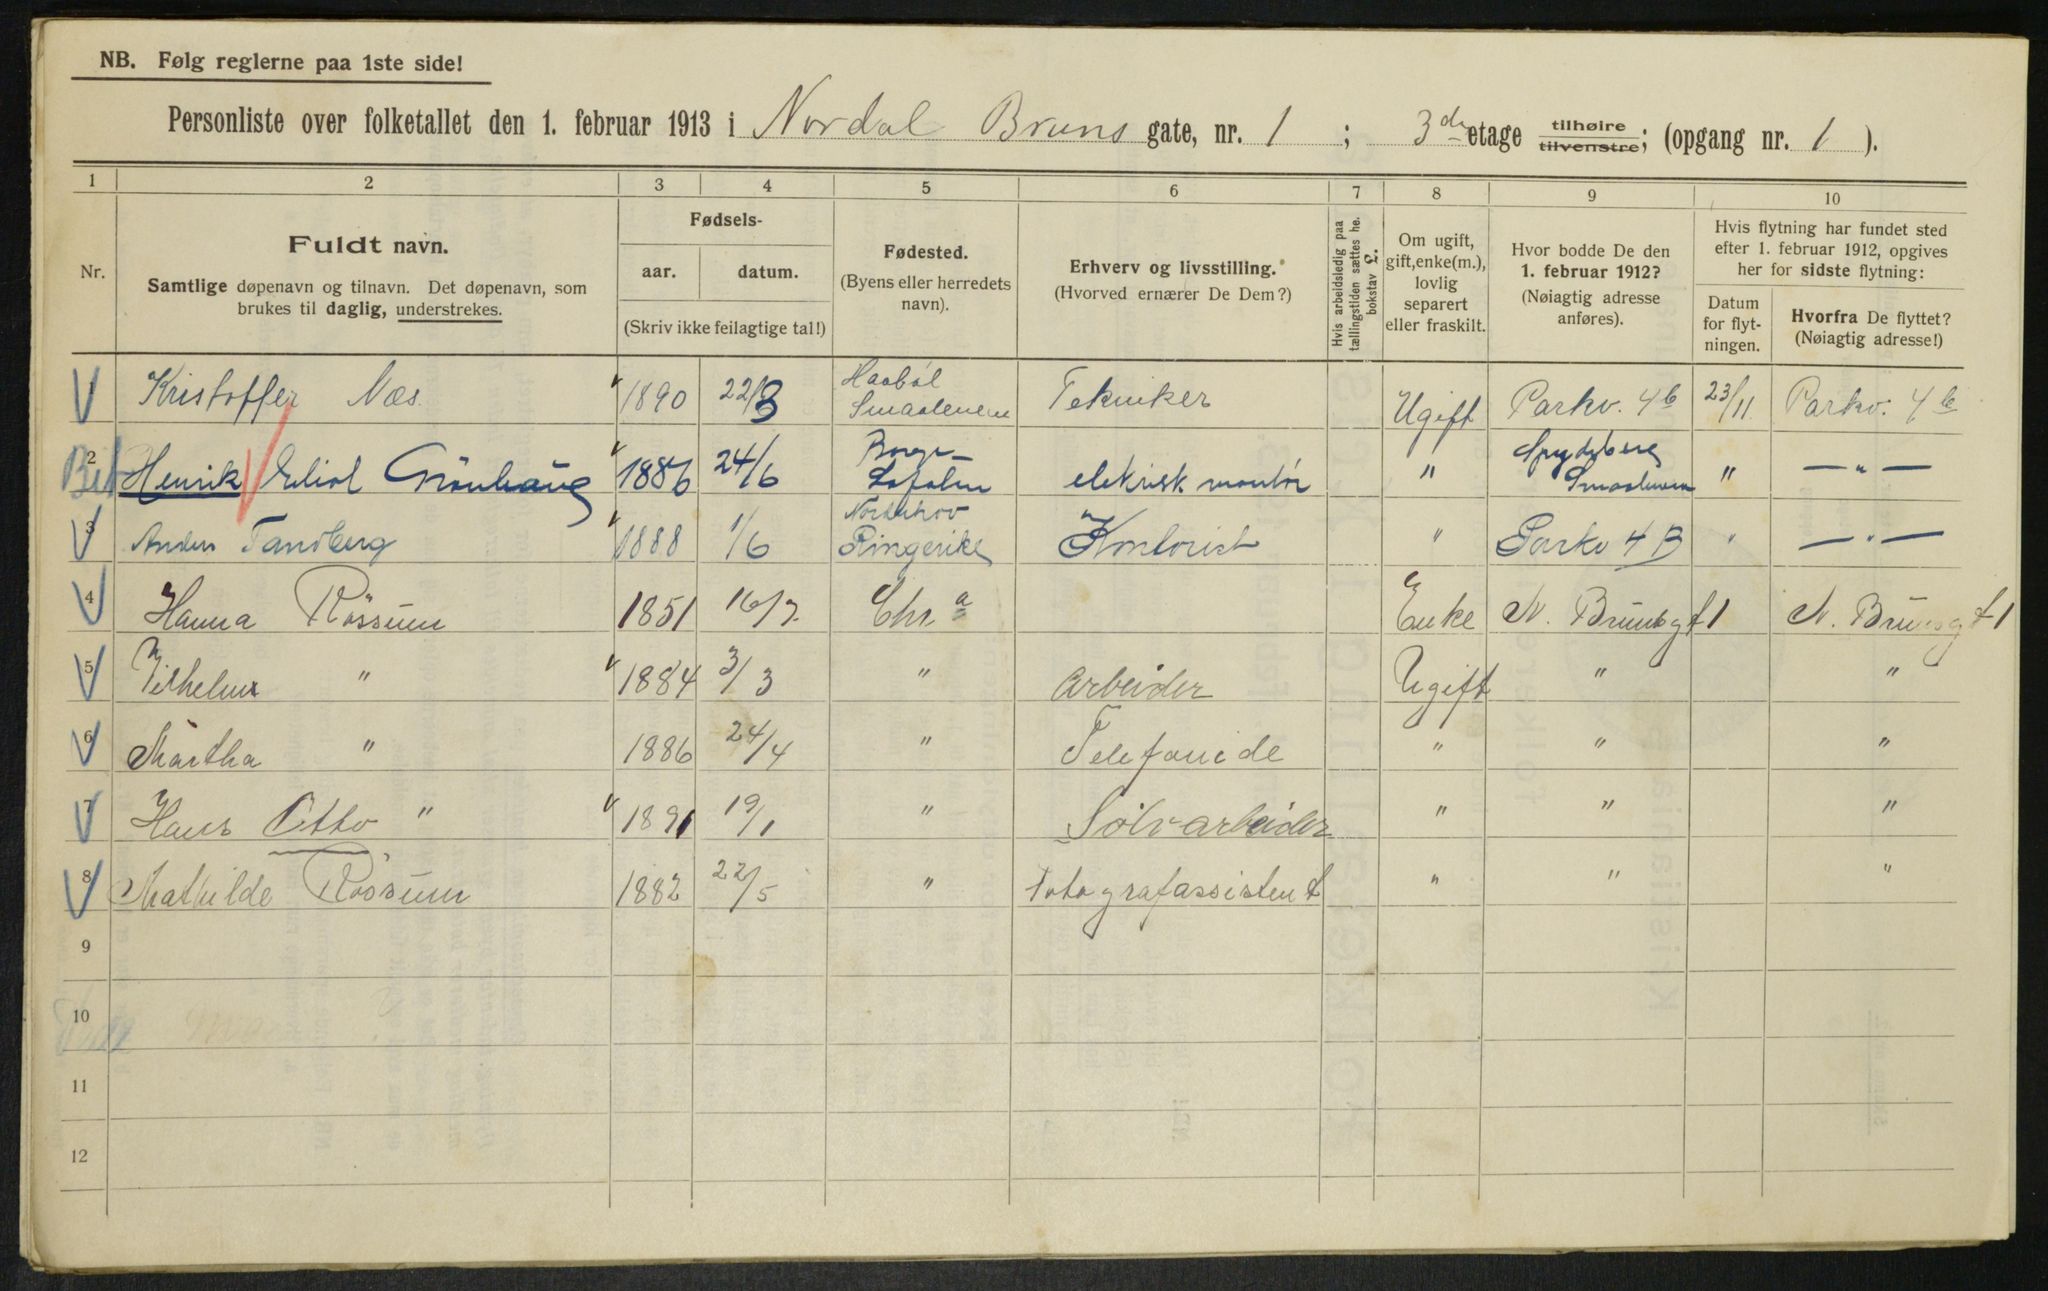 NB. Følg reglerne paa 1ste side!
Personliste over folketallet den 1. februar 1913 i Nordal Bruns gate, nr. 1 ; 3de etage tilhøire tilvenstre; (opgang nr. 1 ).
1 2 3 4 5 6 7 8 9 10
Nr.
Fuldt navn.
Samtlige døpenavn og tilnavn. Det døpenavn, som
brukes til daglig, understrekes.
Fødsels-
aar. datum.
(Skriv ikke feilagtige tal!)
Fødested.
(Byens eller herredets
navn).
Erhverv og livsstilling.
(Hvorved ernærer De Dem?)
Hvis arbeidsledig paa
tællingstiden sættes he.
bokstav £.
Om ugift,
gift, enke(m.),
lovlig
separert
eller fraskilt.
Hvor bodde De den
1. februar 1912?
(Nøiagtig adresse
anføres).
Hvis flytning har fundet sted
efter 1. februar 1912, opgives
her for sidste flytning:
Datum
for flyt-
ningen.
Hvorfra De flyttet?
(Nøiagtig adresse!)
1 Kristoffer Næs 1890 22/3 Haabøl Smaalenene Tekniker Ugift Parkv. 4b 23/11 Parkv. 4b
2 Henrik Grönhaug 1886 24/6 Borge elektrisk montör " Spydeberg Smaalenene " — " —
3 Anders Tandberg 1888 1/6 Norderhov Ringerike Kontorist " Parkv 4 B " — " —
4 Hanna Rössum 1851 16/7 Chra Enke N. Brunsgt 1 N. Brunsgt 1
5 Vilhelm " 1884 3/3 " Arbeider Ugift " "
6 Martha " 1886 24/4 " Telefonide " " "
7 Hans Otto " 1891 19/1 " Sölvarbeider " " "
8 Mathilde Rössum 1882 22/5 " Fotografassistent " " "
9
10
11
12